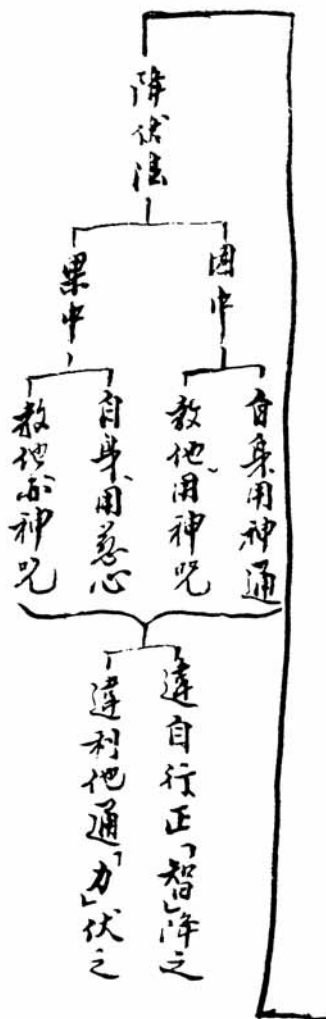 降伏法
因中
自身用神通
教他用神咒
果中
自身用慈心
教他亦神咒
違自行正「智」降之
違利他通「力」伏之